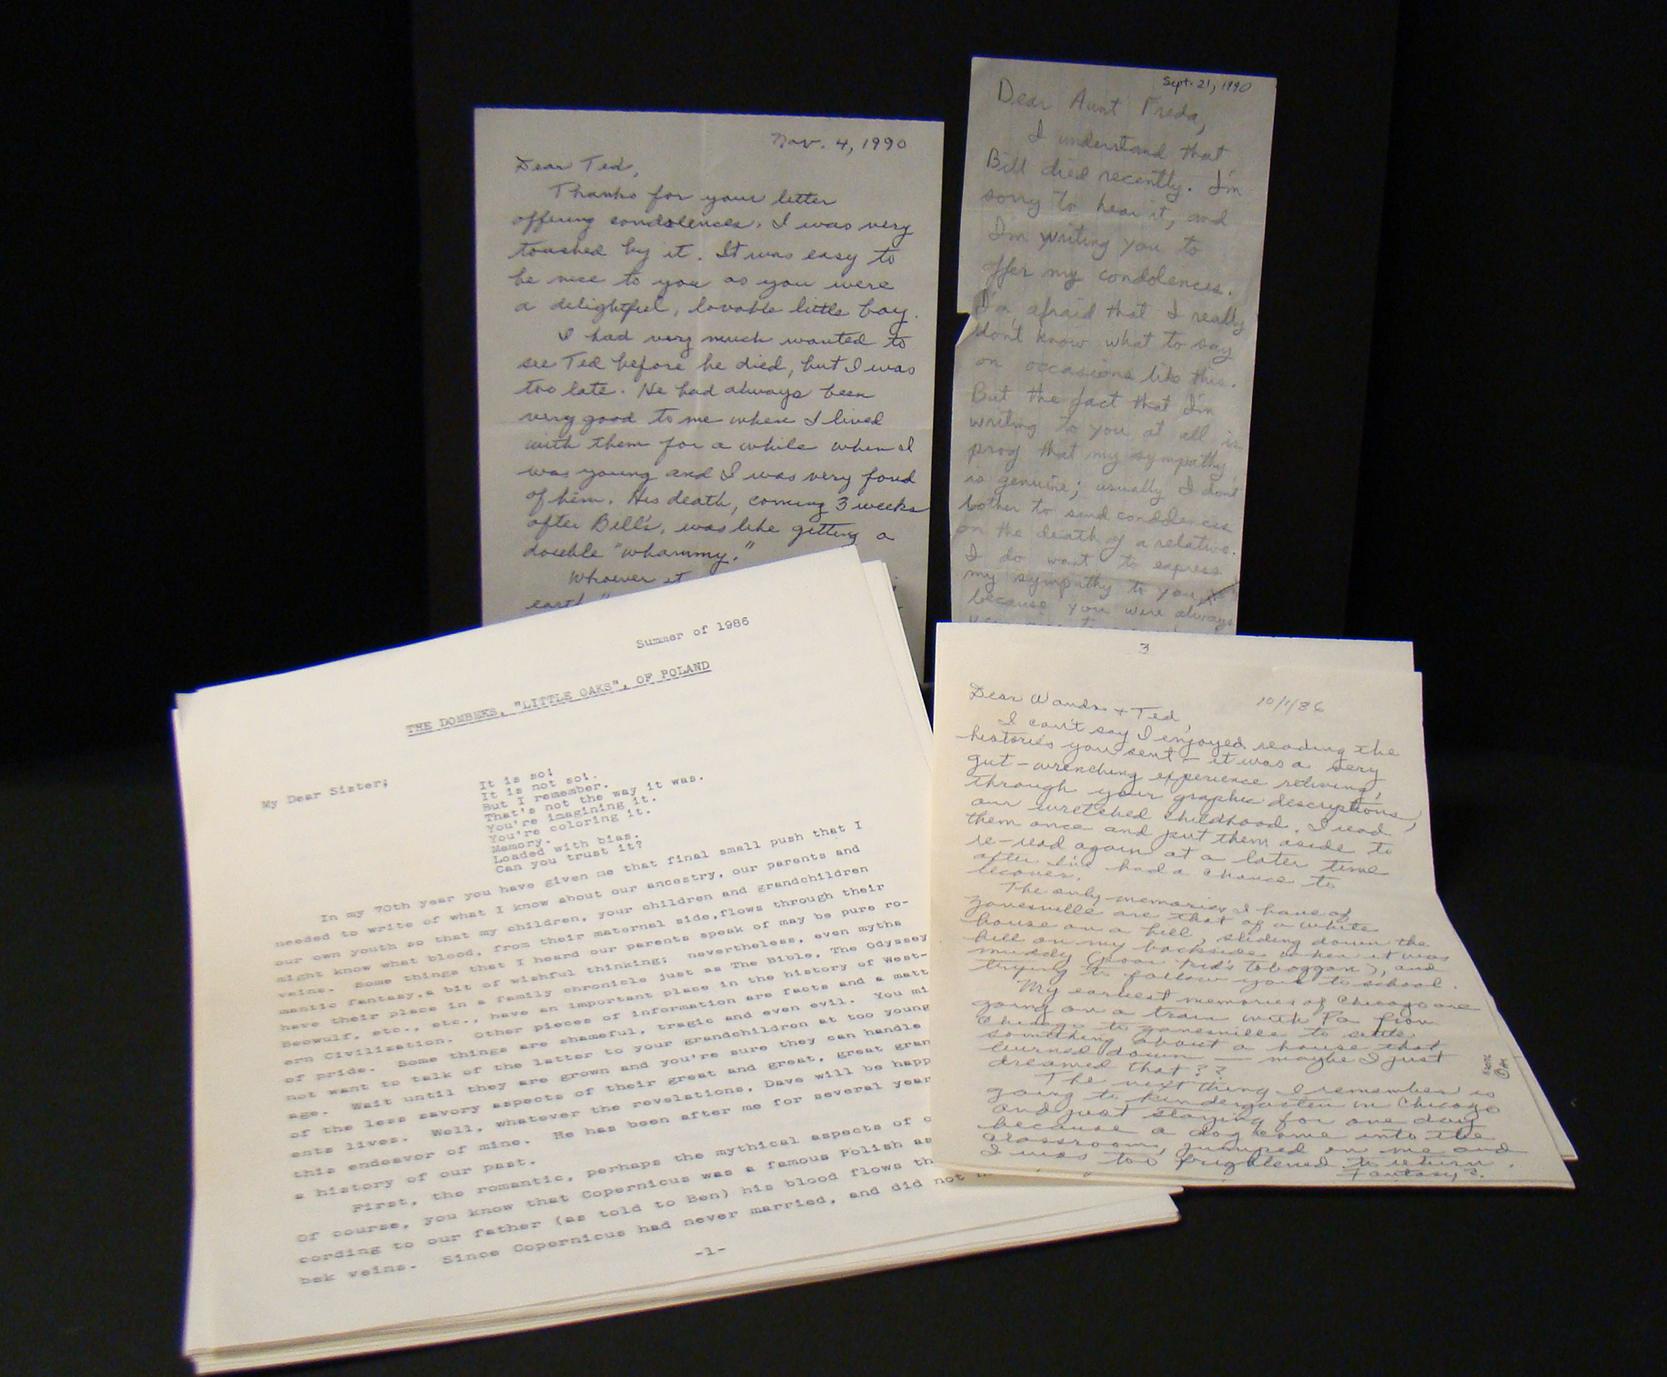 Nov. 4, 1990
Dear Ted,
Thanks for your letter
offering condolences. I was very
touched by it. It was easy to
be nice to you as you were
a delightful, lovable little boy.
I had very much wanted to
see Ted before he died, but I was
too late. He had always been
very good to me when I lived
with them for a while when I
was young and I was very fond
of him. His death, coming 3 weeks
after Bill's, was like getting a
double "whammy."
Whoever it
earth"
Sept. 21, 1990
Dear Aunt Freda,
I understand that
Bill died recently. I'm
sorry to hear it, and
I'm writing you to
offer my condolences.
I'm afraid that I really
don't know what to say
on occasions like this.
But the fact that I'm
writing to you at all is
proof that my sympathy
is genuine; usually I don't
bother to send condolences
on the death of a relative.
I do want to express
my sympathy to you
because you were always
Summer of 1986
THE DOMBEKS, "LITTLE OAKS", OF POLAND
My Dear Sister;
It is so!
It is not so!.
But I remember.
That's not the way it was.
You're imagining it.
You're coloring it.
Memory.
Loaded with bias.
Can you trust it?
In my 70th year you have given me that final small push that I
needed to write of what I know about our ancestry, our parents and
our own youth so that my children, your children and grandchildren
might know what blood, from their maternal side, flows through their
veins. Some things that I heard our parents speak of may be pure ro-
mantic fantasy, a bit of wishful thinking; nevertheless, even myths
have their place in a family chronicle just as The Bible, The Odyssey
Beowulf, etc., etc., have an important place in the history of West-
ern Civilization. Other pieces of information are facts and a matt
of pride. Some things are shameful, tragic and even evil. You mi
not want to talk of the latter to your grandchildren at too young
age. Wait until they are grown and you're sure they can handle
of the less savory aspects of their great and great, great gran
ents lives. Well, whatever the revelations, Dave will be happ
this endeavor of mine. He has been after me for several year
a history of our past.
First, the romantic, perhaps the mythical aspects of o
Of course, you know that Copernicus was a famous Polish as
cording to our father (as told to Ben) his blood flows th
bek veins. Since Copernicus had never married, and did not
-1-
3
10/1/86
Dear Wanda + Ted,
I can't say I enjoyed reading the
histories you sent - it was a very
gut-wrenching experience reliving,
through your graphic descriptions,
our wretched childhood. I read
them once and put them aside to
re-read again at a later time
after I've had a chance to
recover.
The only memories I have of
Zanesville are that of a white
house on a hill, sliding down the
hill on my backside when it was
muddy (poor kid's toboggan), and
trying to follow you to school.
My earliest memories of Chicago are
going on a train with Pa from
Chicago to Zanesville to settle
something about a house that
burned down — maybe I just
dreamed that??
The next thing I remember is
going to kindergarten in Chicago
and just staying for one day
because a dog came into the
classroom, jumped on me and
I was too frightened to return.
Fantasy?